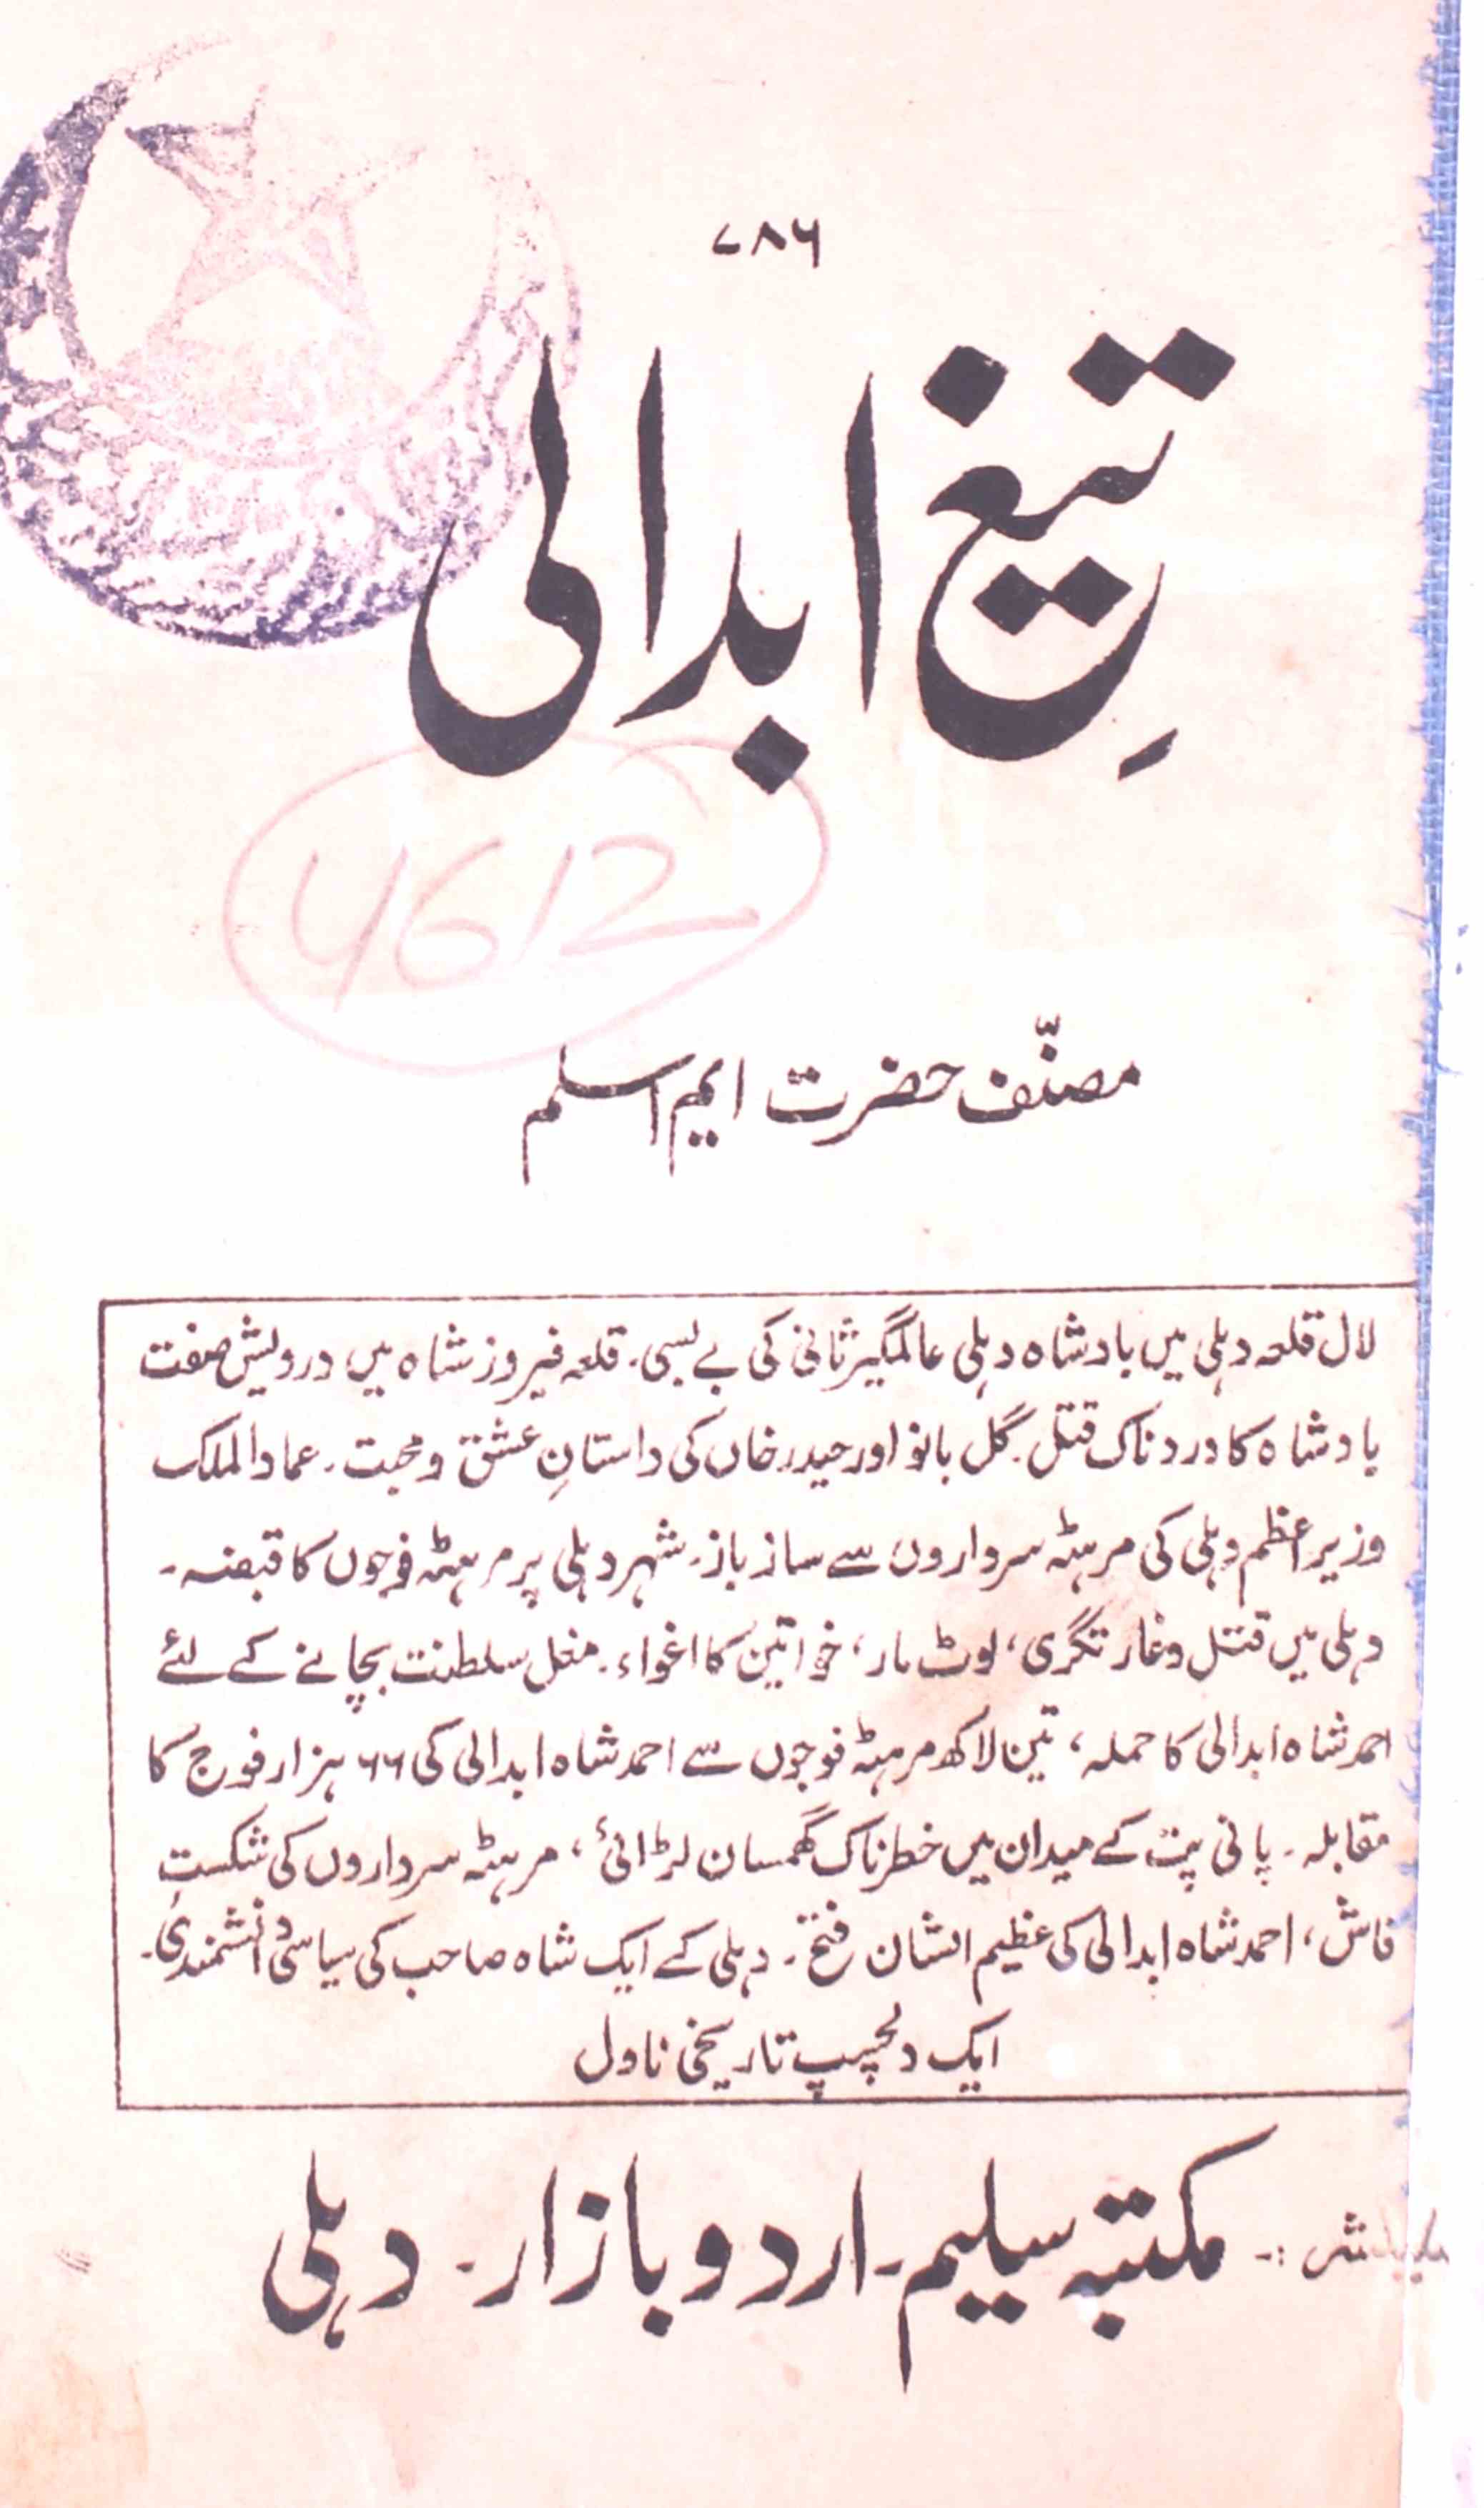 ۷۸۶
تیغِ ابدالی
4612
مصنّف حضرت ایم اسلم
لال قلعہ دہلی میں بادشاہ دہلی عالمگیر ثانی کی بے بسی۔ قلعہ فیروز شاہ میں درویش صفت
بادشاہ کا دردناک قتل۔ گل بانو اور حیدر خاں کی داستانِ عشق و محبت۔ عماد الملک
وزیر اعظم دہلی کی مرہٹہ سرداروں سے ساز باز۔ شہر دہلی پر مرہٹہ فوجوں کا قبضہ۔
دہلی میں قتل و غارتگری، لوٹ مار، خواتین کا اغواء۔ مغل سلطنت بچانے کے لئے
احمد شاہ ابدالی کا حملہ، تین لاکھ مرہٹہ فوجوں سے احمد شاہ ابدالی کی ۶۶ ہزار فوج کا
مقابلہ۔ پانی پت کے میدان میں خطرناک گھمسان لڑائی، مرہٹہ سرداروں کی شکستِ
فاش، احمد شاہ ابدالی کی عظیم الشان فتح۔ دہلی کے ایک شاہ صاحب کی سیاسی دانشمندی۔
ایک دلچسپ تاریخی ناول
پبلیشر :۔ مکتبہ سلیم۔ اردو بازار۔ دہلی